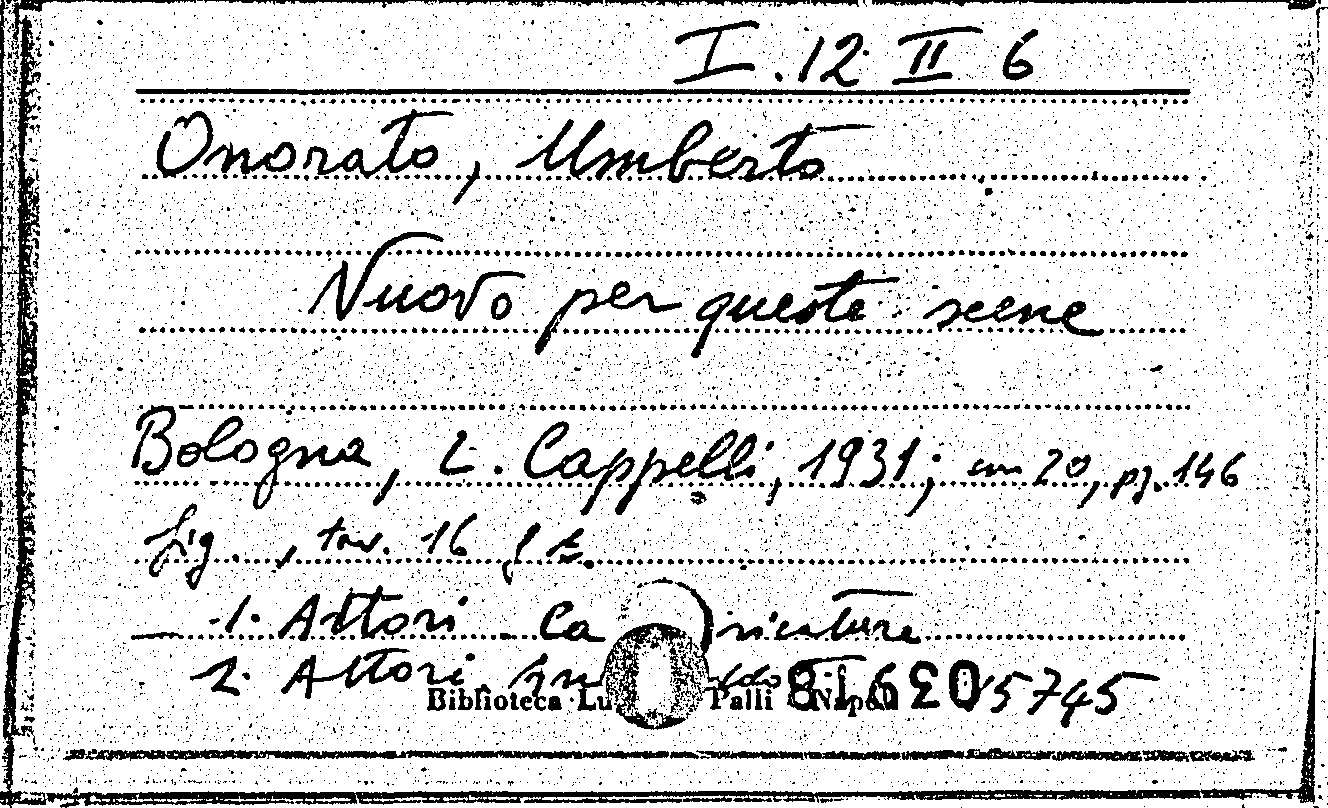 I.12 II 6
Onorato, Umberto
Nuovo per queste scene
Bologna, L. Cappelli, 1931; cm 20, pg. 146
fig. , tav. 16 f t.
1. Attori. Ca ricature
2. Attori. 15745
Biblioteca Lu Palli Napoli